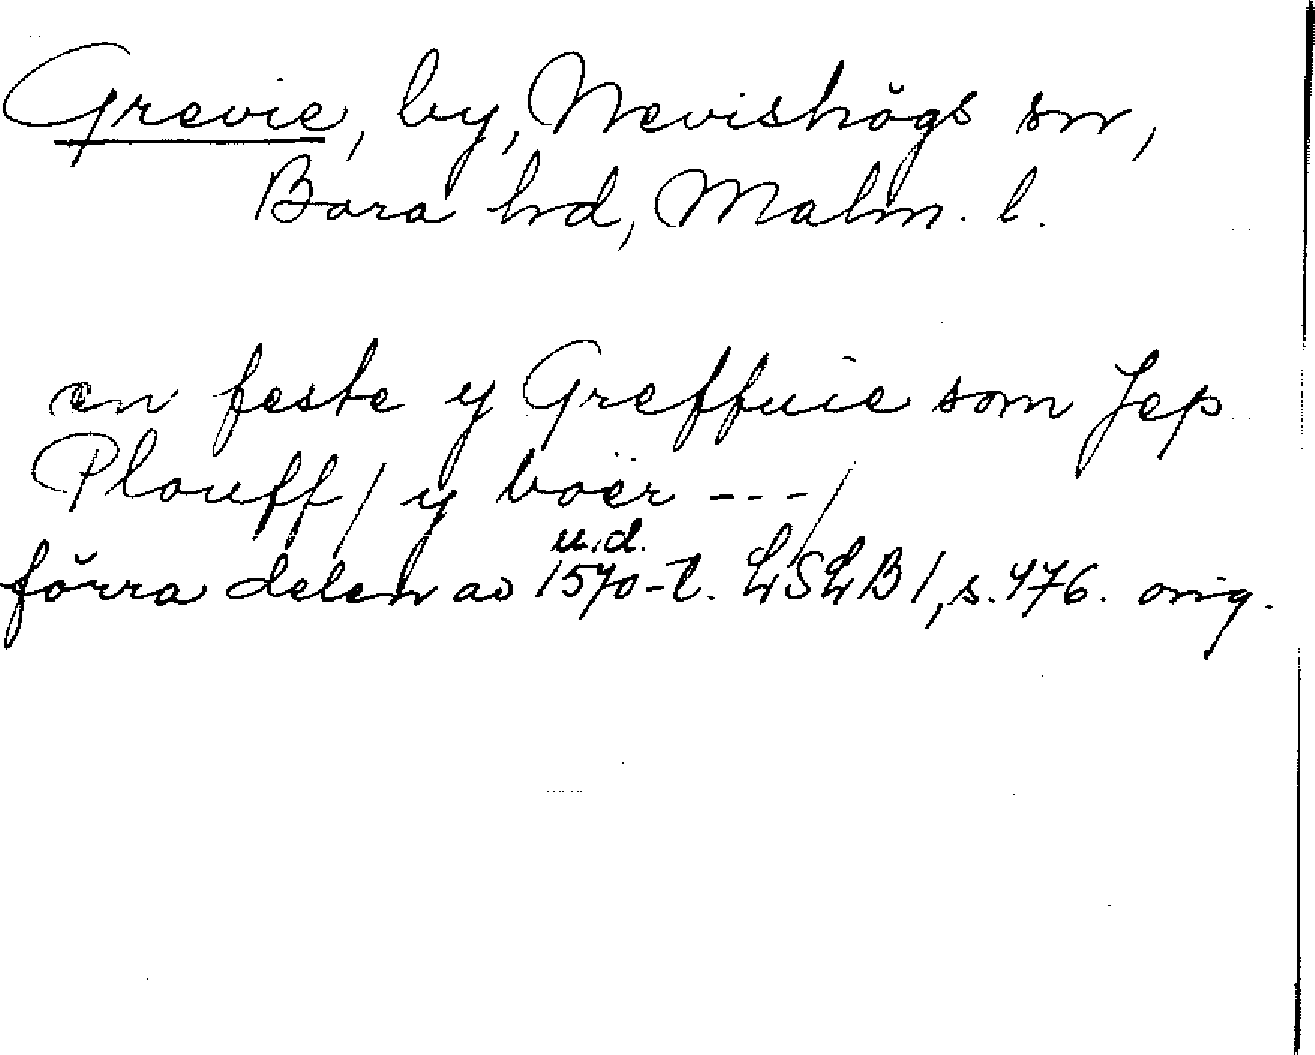 Grevie, by, Nevishögs sn,
Bara hd, Malm. l.
en feste y Greffuie som Jep
Plouff / y boër --- /
u.d.
förra delen av 1570-t. LSLB 1, s. 476. orig.